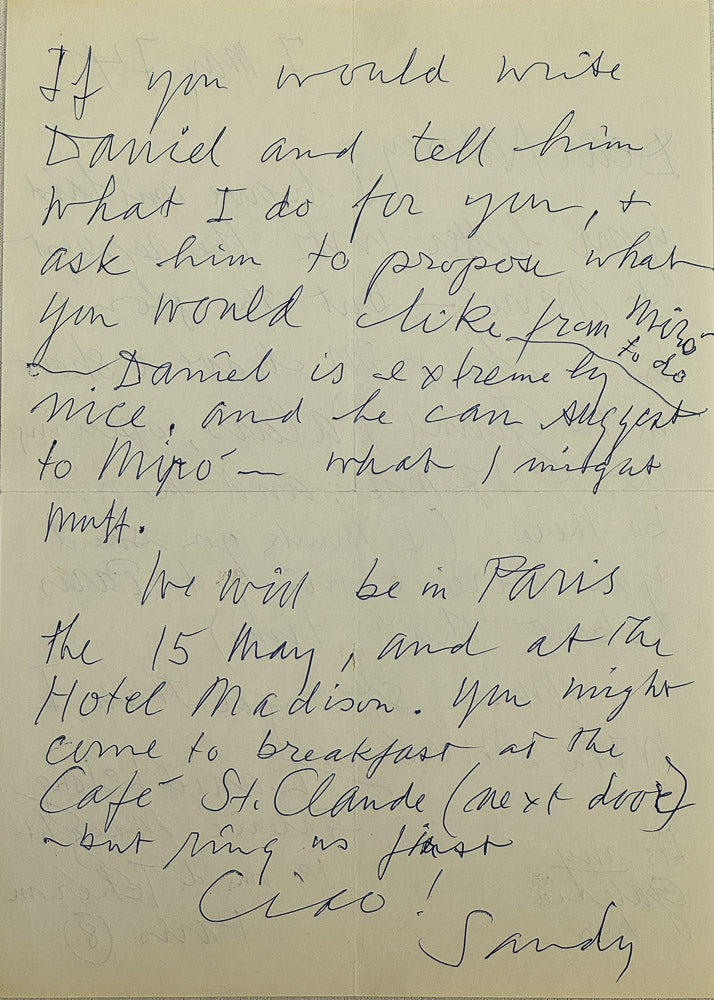 If you would write
Daniel and tell him
what I do for you, +
ask him to propose what
you would like from Miró
to do
— Daniel is extremely
nice, and he can suggest
to Miró — what I might
muff.
We will be in Paris
the 15 May, and at the
Hotel Madison. You might
come to breakfast at the
Café St. Claude (next door)
- but ring us first
Ciao!
Sandy